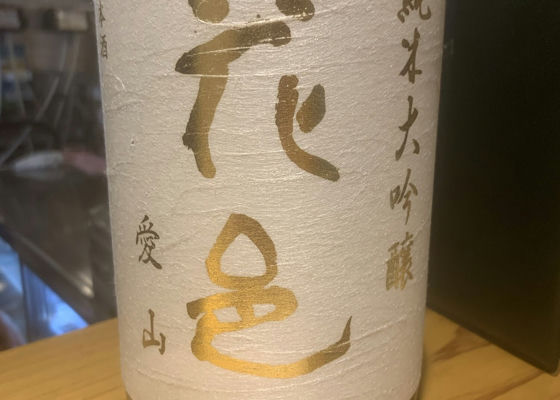 純米大吟醸
花邑
愛山
本酒